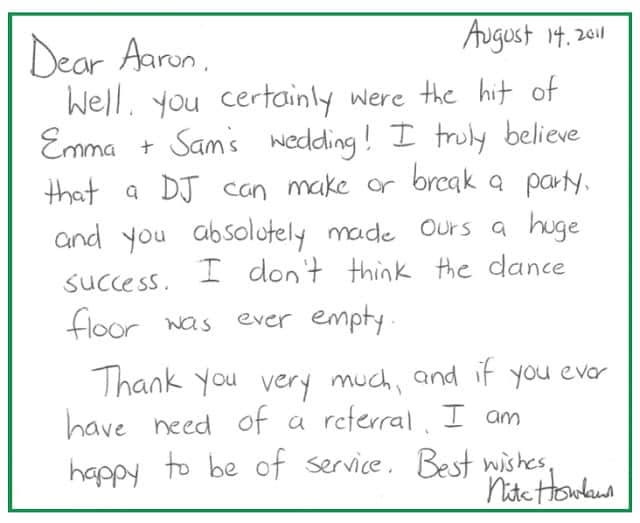 August 14, 2011
Dear Aaron,
Well, you certainly were the hit of
Emma + Sam's wedding! I truly believe
that a DJ can make or break a party,
and you absolutely made ours a huge
success. I don't think the dance
floor was ever empty.
Thank you very much, and if you ever
have need of a referral, I am
happy to be of service. Best wishes,